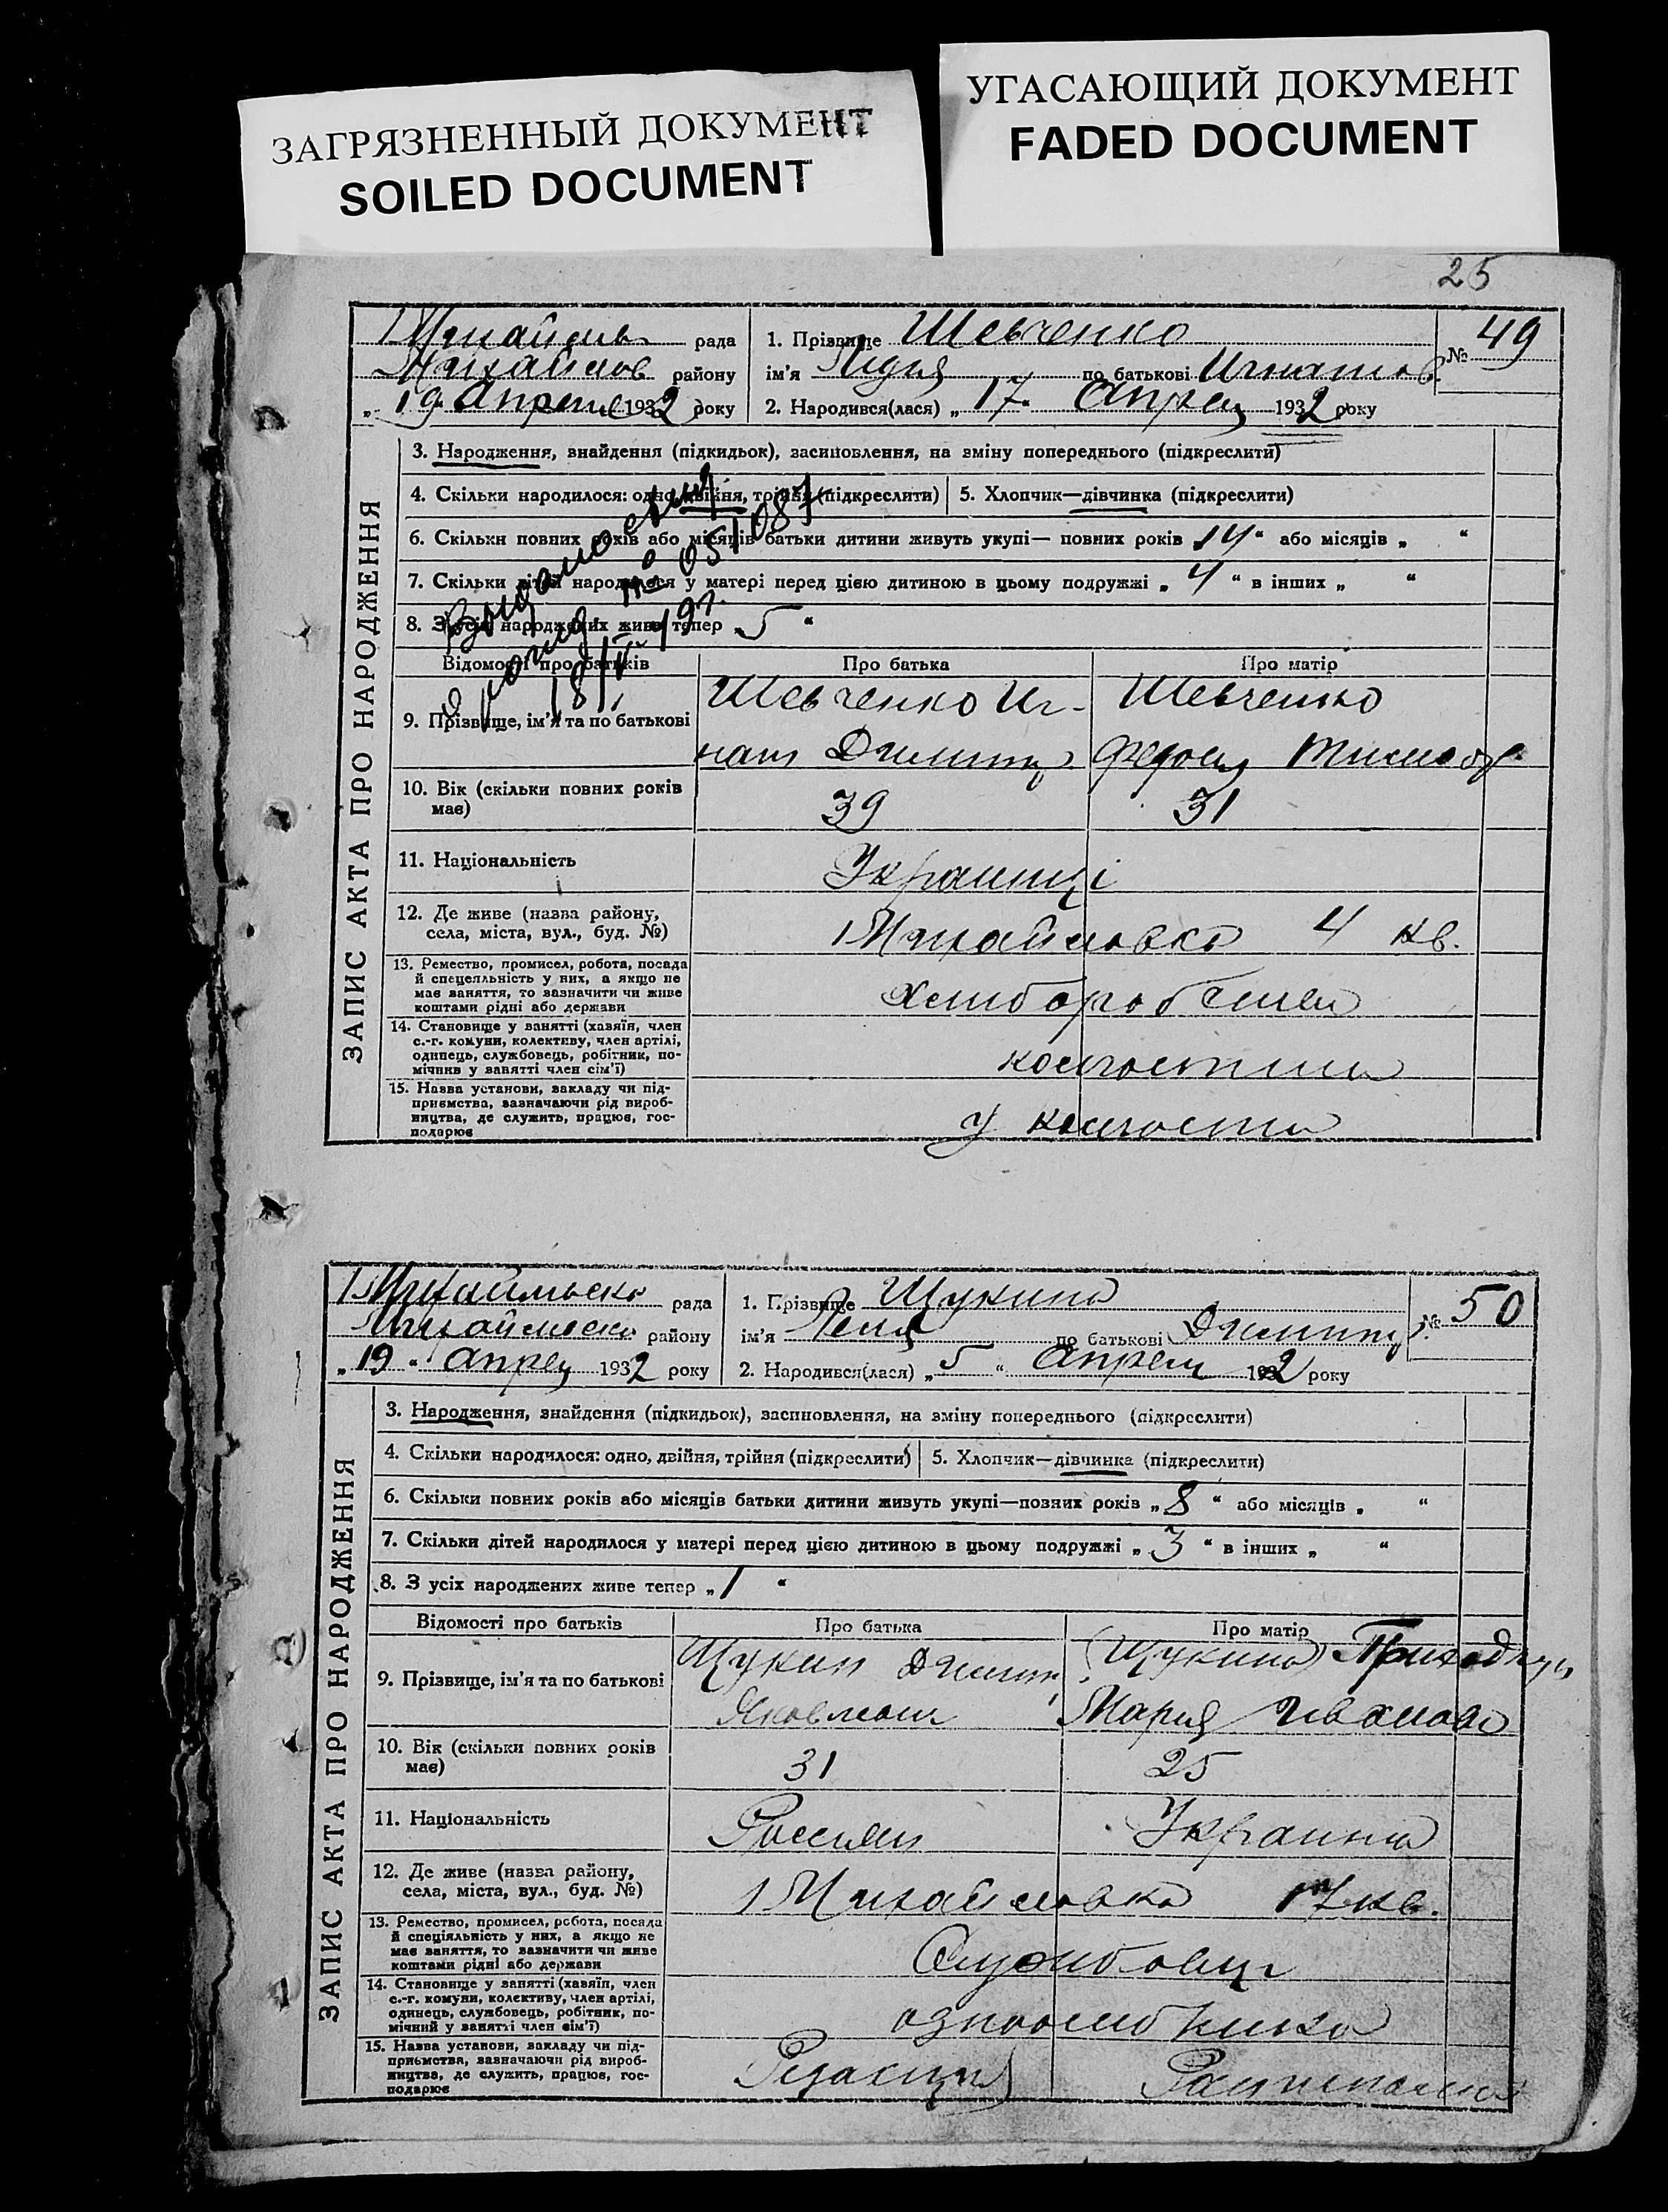 ЗАГРЯЗНЕННЫЙ ДОКУМЕНТ
SOILED DOCUMENT
УГАСАЮЩИЙ ДОКУМЕНТ
FADED DOCUMENT
25
ЗАПИС АКТА ПРО НАРОДЖЕННЯ
рада
району
19 Апреля 1932 року
1. Прізвище Шевченко
ім'я Лидия по батькові Игнатов.
2. Народився(лася) „17“ Апреля 1932 року
№ 49
3. Народження, знайдення (підкидьок), засиновлення, на зміну попереднього (підкреслити)
4. Скільки народилося: одно, двійня, трійня (підкреслити) 5. Хлопчик—дівчинка (підкреслити)
6. Скільки повних років або місяців батьки дитини живуть укупі— повних років 14“ або місяців „ “
7. Скільки дітей народилося у матері перед цією дитиною в цьому подружжі „ 4 “ в інших „ “
8. З усіх народжених живе тепер „5“
№ 051087
Відомості про батьків Про батька Про матір
9. Прізвище, ім'я та по батькові
Шевченко Иг-
нат Дмитр.
Шевченко
Федосия
10. Вік (скільки повних років має) 39 31
11. Національність Украинці
12. Де живе (назва району, села, міста, вул., буд. №) 1 Михайловка 4 кв.
13. Ремество, промисел, робота, посада
й спецеяльність у них, а якщо не
має заняття, то зазначити чи живе
коштами рідні або держави
14. Становище у занятті (хазяїн, член
с.-г. комуни, колективу, член артілі,
одинець, службовець, робітник, по-
мічнив у занятті член сім'ї)
15. Назва установи, закладу чи під-
приємства, зазначаючи рід вироб-
ництва, де служить, працює, гос-
подарює
ЗАПИС АКТА ПРО НАРОДЖЕННЯ
рада
району
„19“ Апреля 1932 року
1. Прізвище Щукина
ім'я по батькові Дмитр.
2. Народився(лася) „5“ Апреля 1932 року
№ 50
3. Народження, знайдення (підкидьок), засиновлення, на зміну попереднього (підкреслити)
4. Скільки народилося: одно, двійня, трійня (підкреслити) 5. Хлопчик—дівчинка (підкреслити)
6. Скільки повних років або місяців батьки дитини живуть укупі—повних років „8“ або місяців „ “
7. Скільки дітей народилося у матері перед цією дитиною в цьому подружжі „3“ в інших „ “
8. З усіх народжених живе тепер „1“
Відомості про батьків Про батька Про матір
9. Прізвище, ім'я та по батькові
Щукин Дмитр.
Яковлевич
(Щукина)
Мария Ивановна
10. Вік (скільки повних років має) 31 25
11. Національність Россиян Украинка
12. Де живе (назва району, села, міста, вул., буд. №) 1 Михайловка 17 кв.
13. Ремество, промисел, робота, посада
й спеціяльність у них, а якщо не
має заняття, то зазначити чи живе
коштами рідні або держави
Службовци
14. Становище у занятті (хазяїн, член
с.-г. комуни, колективу, член артілі,
одинець, службовець, робітник, по-
мічний у занятті член сім'ї)
15. Назва установи, закладу чи під-
приємства, зазначаючи рід вироб-
ництва, де служить, працює, гос-
подарює
Редакция